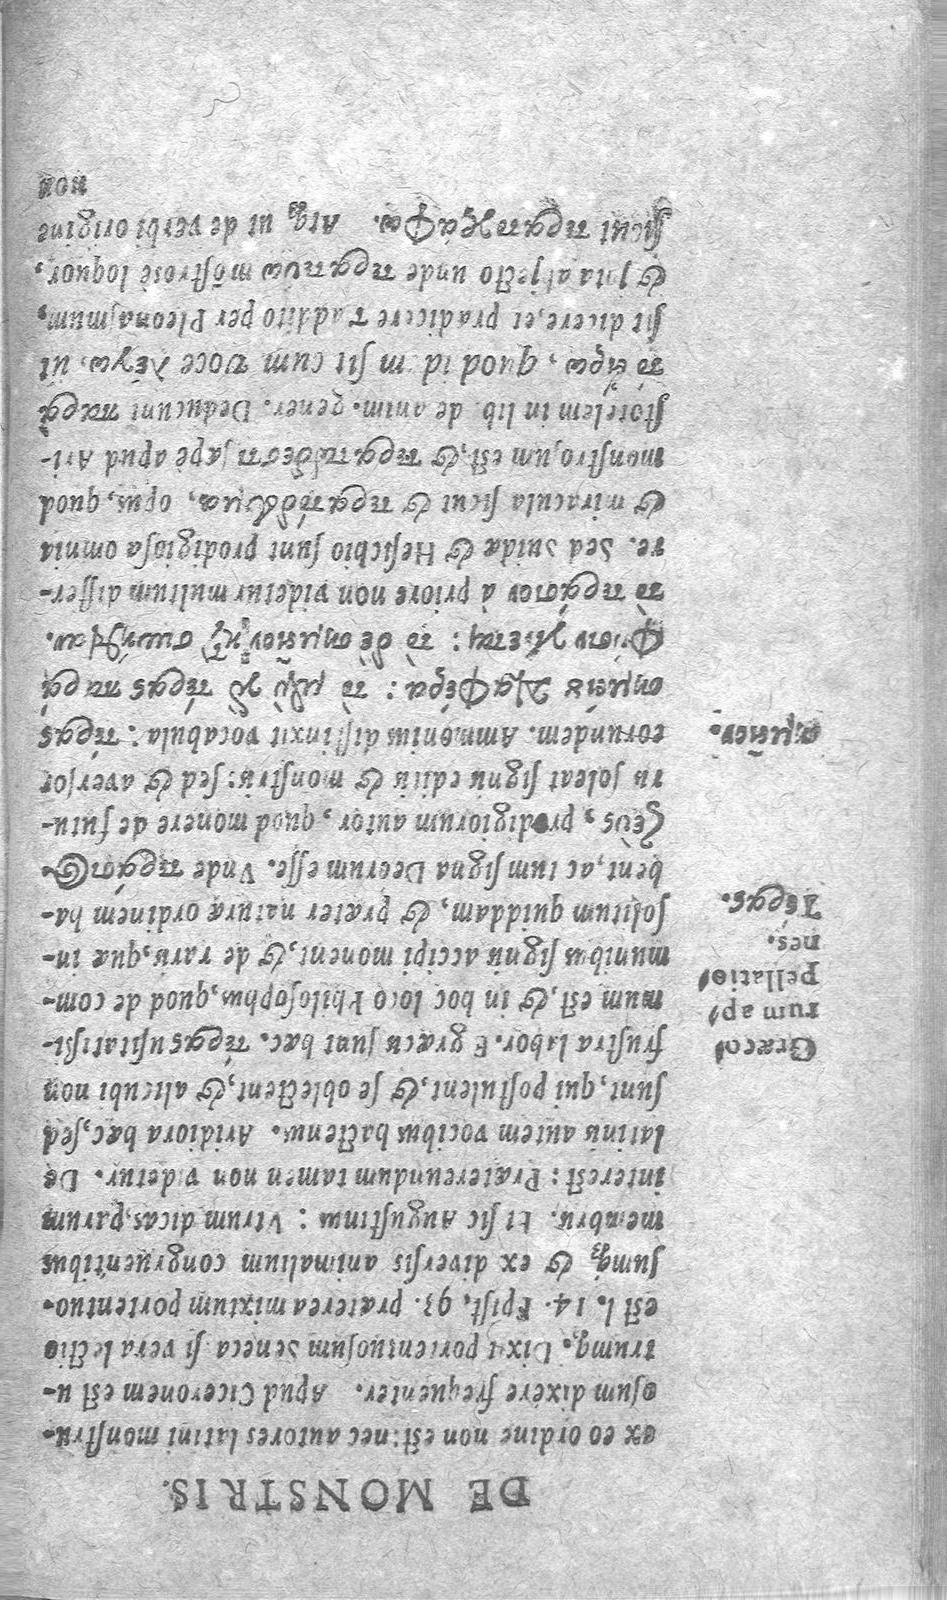 DE MONSTRIS.
ex eo ordine non est: nec autores latini monstru-
osum dixere frequenter. Apud Ciceronem est u-
trumq;. Dixit portentuosum Seneca si vera lectio
est l. 14. Epist. 93. præterea mixtum portentuo-
sumq; & ex diversis animalium congruentibus
membris. Et sic Augustinus: Vtrum dicas, parum
interest: Prætereundum tamen non videtur. De
latinis autem vocibus hactenus. Aridiora hæc, sed
sunt, qui postulent, & se oblectent, & alicubi non
frustra labor. E græcis sunt hæc. τέρας usitatissi-
mum est, & in hoc loco Philosophus, quod de com-
munibus signis accipi monent, & de raris, quæ in-
solitum quiddam, & præter naturæ ordinem ha-
bent, ac tum signa Deorum esse. Vnde τεράστιος
ζεὺς, prodigiorum autor, quod monere de futu-
ris soleat signis editis & monstris: sed & aversor
eorundem. Ammonius distinxit vocabula: τέρας
σημείου διαφέρει: τὸ μὲν γὸ τέρας παρὰ
φύσιν γίνεται: τὸ δὲ σημεῖον
τὸ τεράστιον à priore non videtur multum differ-
re. Sed Suidæ & Hesichio sunt prodigiosa omnia
& miracula sicut & opus, quod
monstrosum est, & sæpè apud Ari-
stotelem in lib. de anim. gener. Deducunt παρὰ
τὸ εἴρω, quod idem sit cum voce λέγω, ut
sit dicere, et prædicere τ addito per Pleonasmum,
& Iota abjecto unde mõstrosè loquor,
sicut Atq; ut de verbi origine
non
Græco-
rum ap-
pellatio-
nes.
Τέρας.
σημεῖον.